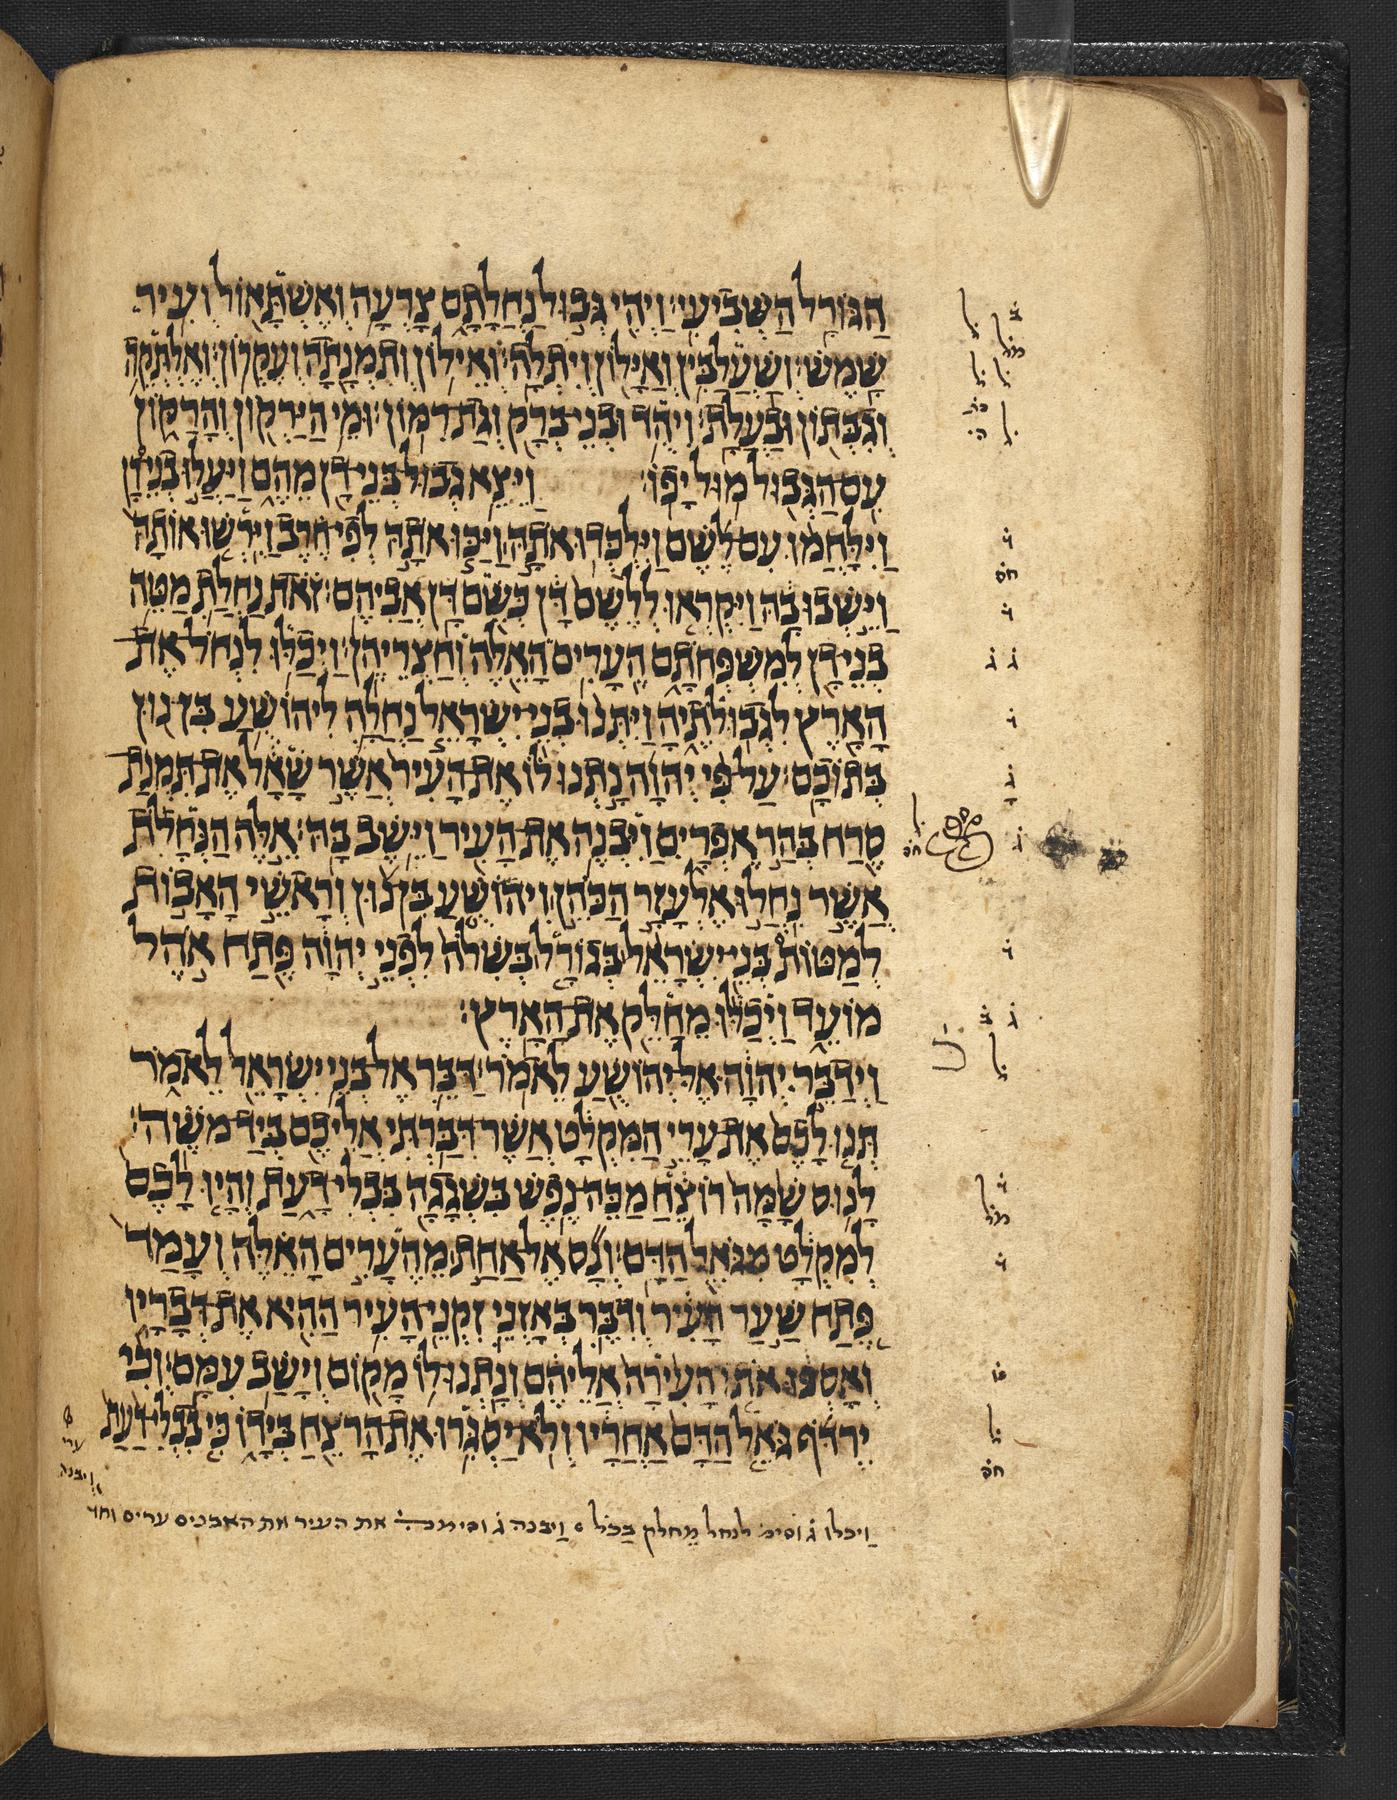 הַגּוֹרָל הַשְּׁבִיעִי׃ וַיְהִי גְּבוּל נַחֲלָתָם צָרְעָה וְאֶשְׁתָּאוֹל וְעִיר
שָׁמֶשׁ׃ וְשַׁעֲלַבִּין וְאַיָּלוֹן וְיִתְלָה׃ וְאֵילוֹן וְתִמְנָתָה וְעֶקְרוֹן׃ וְאֶלְתְּקֵה
וְגִבְּתוֹן וּבַעֲלָת׃ וִיהֻד וּבְנֵי בְרַק וְגַת רִמּוֹן׃ וּמֵי הַיַּרְקוֹן וְהָרַקּוֹן
עִם הַגְּבוּל מוּל יָפוֹ׃ וַיֵּצֵא גְבוּל בְּנֵי דָן מֵהֶם וַיַּעֲלוּ בְנֵי דָן
וַיִּלָּחֲמוּ עִם לֶשֶׁם וַיִּלְכְּדוּ אֹתָהּ וַיַּכּוּ אֹתָהּ לְפִי חֶרֶב וַיִּרְשׁוּ אוֹתָהּ
וַיֵּשְׁבוּ בָהּ וַיִּקְרְאוּ לְלֶשֶׁם דָּן כְּשֵׁם דָּן אֲבִיהֶם׃ זֹאת נַחֲלַת מַטֵּה
בְנֵי דָן לְמִשְׁפְּחֹתָם הֶעָרִים הָאֵלֶּה וְחַצְרֵיהֶן׃ וַיְכַלּוּ לִנְחֹל אֶת
הָאָרֶץ לִגְבוּלֹתֶיהָ וַיִּתְּנוּ בְנֵי יִשְׂרָאֵל נַחֲלָה לִיהוֹשֻׁעַ בִּן נוּן
בְּתוֹכָם׃ עַל פִּי יְהוָה נָתְנוּ לוֹ אֶת הָעִיר אֲשֶׁר שָׁאָל אֶת תִּמְנַת
סֶרַח בְּהַר אֶפְרָיִם וַיִּבְנֶה אֶת הָעִיר וַיֵּשֶׁב בָּהּ׃ אֵלֶּה הַנְּחָלֹת
אֲשֶׁר נִחֲלוּ אֶלְעָזָר הַכֹּהֵן וִיהוֹשֻׁעַ בִּן נוּן וְרָאשֵׁי הָאָבוֹת
לְמַטּוֹת בְּנֵי יִשְׂרָאֵל בְּגוֹרָל בְּשִׁלֹה לִפְנֵי יְהוָה פֶּתַח אֹהֶל
מוֹעֵד וַיְכַלּוּ מֵחַלֵּק אֶת הָאָרֶץ׃
וַיְדַבֵּר יְהוָה אֶל יְהוֹשֻׁעַ לֵאמֹר׃ דַּבֵּר אֶל בְּנֵי יִשְׂרָאֵל לֵאמֹר
תְּנוּ לָכֶם אֶת עָרֵי הַמִּקְלָט אֲשֶׁר דִּבַּרְתִּי אֲלֵיכֶם בְּיַד מֹשֶׁה׃
לָנוּס שָׁמָּה רוֹצֵחַ מַכֵּה נֶפֶשׁ בִּשְׁגָגָה בִּבְלִי דָעַת וְהָיוּ לָכֶם
לְמִקְלָט מִגֹּאֵל הַדָּם׃ וְנָס אֶל אַחַת מֵהֶעָרִים הָאֵלֶּה וְעָמַד
פֶּתַח שַׁעַר הָעִיר וְדִבֶּר בְּאָזְנֵי זִקְנֵי הָעִיר הַהִיא אֶת דְּבָרָיו
וְאָסְפוּ אֹתוֹ הָעִירָה אֲלֵיהֶם וְנָתְנוּ לוֹ מָקוֹם וְיָשַׁב עִמָּם׃ וְכִי
יִרְדֹּף גֹּאֵל הַדָּם אַחֲרָיו וְלֹא יַסְגִּרוּ אֶת הָרֹצֵחַ בְּיָדוֹ כִּי בִבְלִי דַעַת
וַיכלו ג̇ וסימ̇ לנחל מֵחלק בַכֹל ׃ וַיבנה ג̇ וסימנה̇ את העיר את האבנים ערים וחד